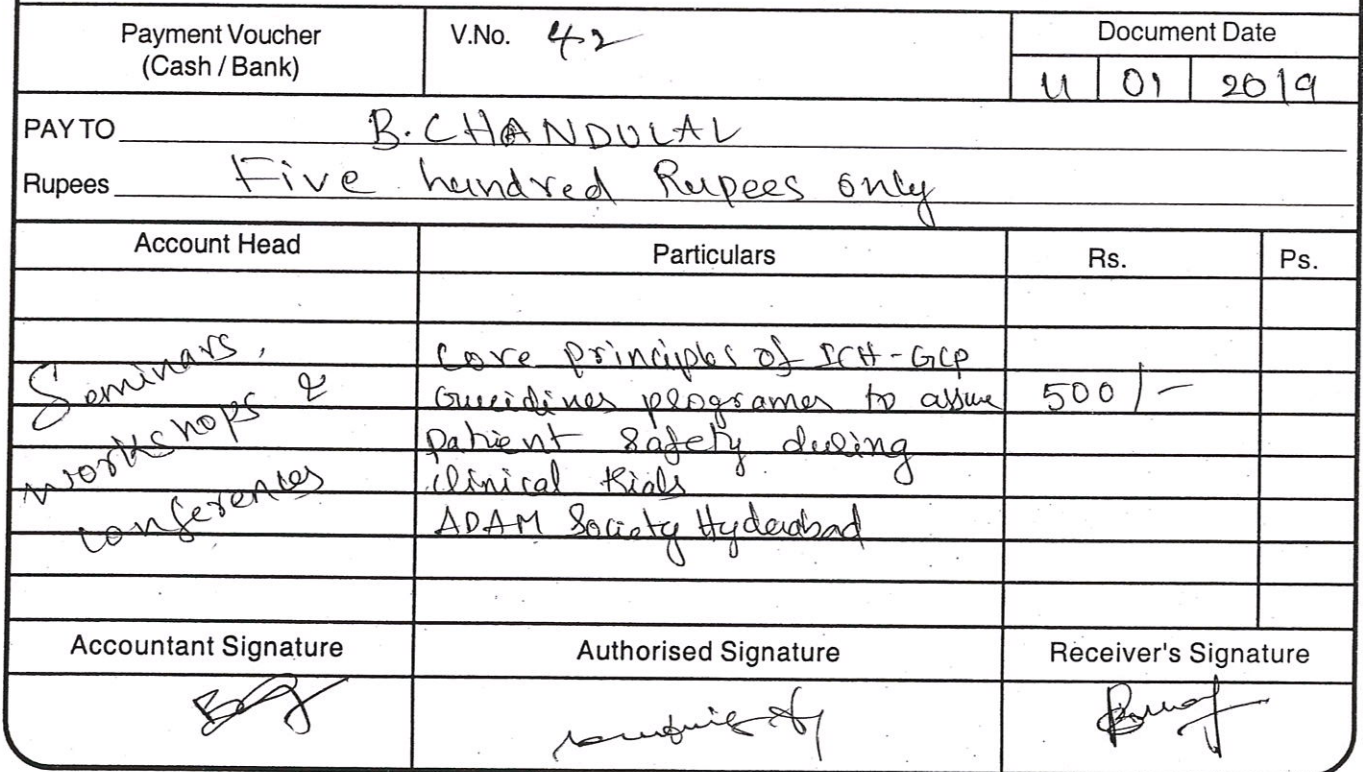 Payment Voucher
(Cash / Bank)
V.No. 42
Document Date
11 01 2019
PAY TO B. CHANDULAL
Rupees Five hundred Rupees only
Account Head
Particulars
Rs.
Ps.
Seminars,
workshops &
conferences
Core principles of ICH-GCP
Gueidines programes to assure
patient safety during
clinical trials
ADAM Society Hyderabad
500/-
Accountant Signature
Authorised Signature
Receiver's Signature